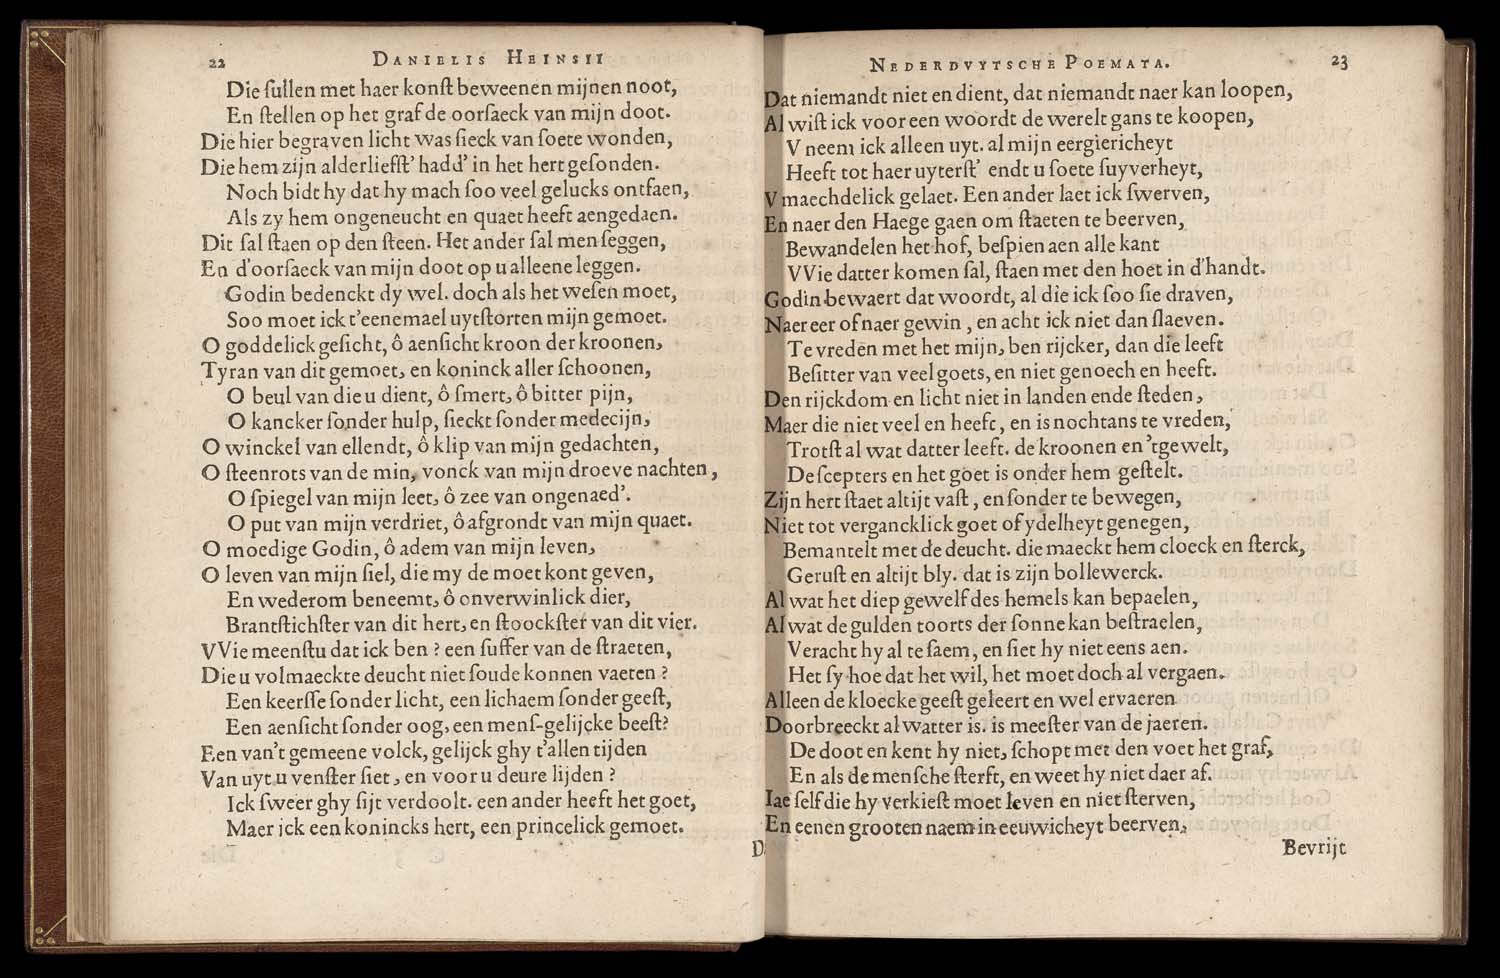 22 DANIELIS HEINSII
Die ſullen met haer konſt beweenen mijnen noot,
En ſtellen op het graf de oorſaeck van mijn doot.
Die hier begraven licht was ſieck van ſoete wonden,
Die hem zijn alderliefſt' hadd' in het hert geſonden.
Noch bidt hy dat hy mach ſoo veel gelucks ontfaen,
Als zy hem ongeneucht en quaet heeft aengedaen.
Dit ſal ſtaen op den ſteen. Het ander ſal men ſeggen,
En d'oorſaeck van mijn doot op u alleene leggen.
Godin bedenckt dy wel. doch als het weſen moet,
Soo moet ick t'eenemael uytſtorten mijn gemoet.
O goddelick geſicht, ô aenſicht kroon der kroonen,
Tyran van dit gemoet, en koninck aller ſchoonen,
O beul van die u dient, ô ſmert, ô bitter pijn,
O kancker ſonder hulp, ſieckt ſonder medecijn,
O winckel van ellendt, ô klip van mijn gedachten,
O ſteenrots van de min, vonck van mijn droeve nachten,
O ſpiegel van mijn leet, ô zee van ongenaed'.
O put van mijn verdriet, ô afgrondt van mijn quaet.
O moedige Godin, ô adem van mijn leven,
O leven van mijn ſiel, die my de moet kont geven,
En wederom beneemt, ô onverwinlick dier,
Brantſtichſter van dit hert, en ſtoockſter van dit vier.
VVie meenſtu dat ick ben? een ſuffer van de ſtraeten,
Die u volmaeckte deucht niet ſoude konnen vaeten?
Een keerſſe ſonder licht, een lichaem ſonder geeſt,
Een aenſicht ſonder oog, een menſ-gelijcke beeſt?
Een van't gemeene volck, gelijck ghy t'allen tijden
Van uyt u venſter ſiet, en voor u deure lijden?
Ick ſweer ghy ſijt verdoolt. een ander heeft het goet,
Maer ick een konincks hert, een princelick gemoet.
D
NEDERDVYTSCHE POEMATA. 23
Dat niemandt niet en dient, dat niemandt naer kan loopen,
Al wiſt ick voor een woordt de werelt gans te koopen,
V neem ick alleen uyt. al mijn eergiericheyt
Heeft tot haer uyterſt' endt u ſoete ſuyverheyt,
V maechdelick gelaet. Een ander laet ick ſwerven,
En naer den Haege gaen om ſtaeten te beerven,
Bewandelen het hof, beſpien aen alle kant
VVie datter komen ſal, ſtaen met den hoet in d'handt.
Godin bewaert dat woordt, al die ick ſoo ſie draven,
Naer eer of naer gewin, en acht ick niet dan ſlaeven.
Te vreden met het mijn, ben rijcker, dan die leeft
Beſitter van veel goets, en niet genoech en heeft.
Den rijckdom en licht niet in landen ende ſteden,
Maer die niet veel en heeft, en is nochtans te vreden,
Trotſt al wat datter leeft. de kroonen en 'tgewelt,
De ſcepters en het goet is onder hem geſtelt.
Zijn hert ſtaet altijt vaſt, en ſonder te bewegen,
Niet tot vergancklick goet of ydelheyt genegen,
Bemantelt met de deucht. die maeckt hem cloeck en ſterck,
Geruſt en altijt bly. dat is zijn bollewerck.
Al wat het diep gewelf des hemels kan bepaelen,
Al wat de gulden toorts der ſonne kan beſtraelen,
Veracht hy al te ſaem, en ſiet hy niet eens aen.
Het ſy hoe dat het wil, het moet doch al vergaen.
Alleen de kloecke geeſt geleert en wel ervaeren
Doorbreeckt al watter is. is meeſter van de jaeren.
De doot en kent hy niet, ſchopt met den voet het graf,
En als de menſche ſterft, en weet hy niet daer af.
Iae ſelf die hy verkieſt moet leven en niet ſterven,
En eenen grooten naem in eeuwicheyt beerven,
Bevrijt